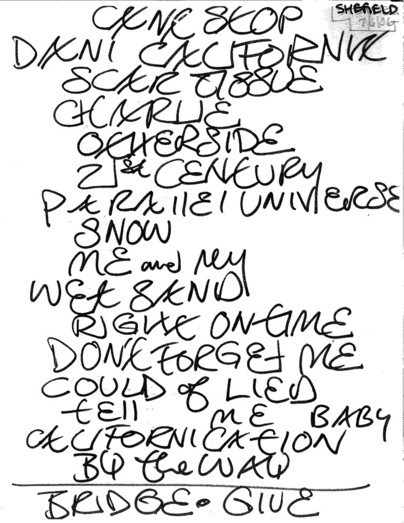 SHEFIELD
CAN'T STOP
DANI CALIFORNIA
SCAR TISSUE
CHARLIE
OTHERSIDE
21st CENTURY
PARAllEl UNIVERSE
SNOW
ME and My
WET SAND
RIGHT ON TIME
DONT FORGET ME
COULD of LIED
tell ME BABY
CALIFORNICATION
BY the WAY
BRIDGE • GIVE